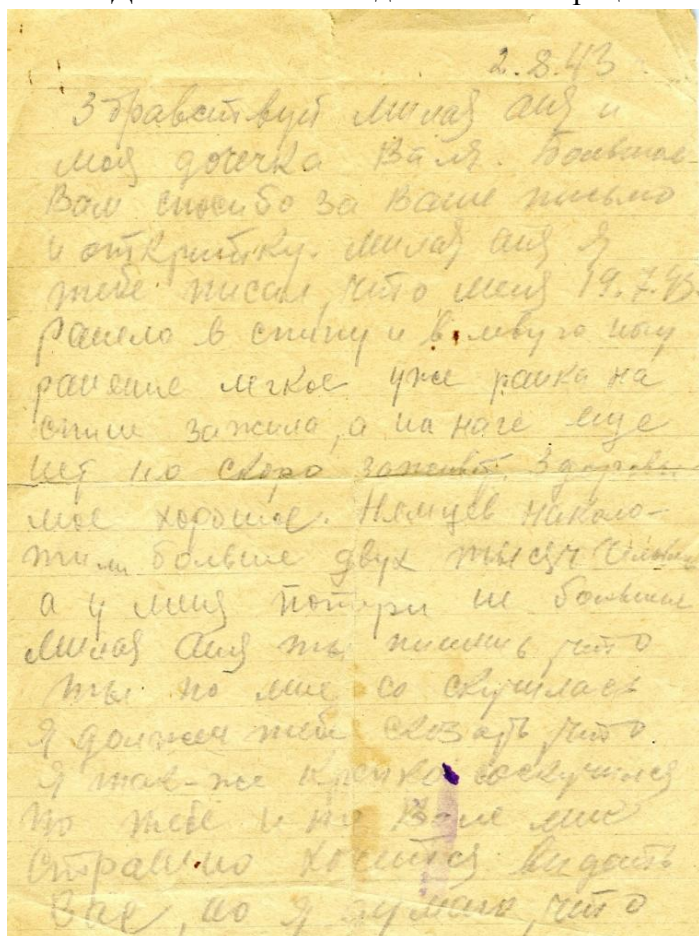 2.8.43
Здравствуй милая Аня и
моя дочечка Валя. Большое
Вам спасибо за Ваше письмо
и открытку. Милая Аня я
тебе писал, что меня 19.7.43
ранело в спину и в левую ногу
ранение легкое уже ранка на
спине зажила, а на наге еще
нет но скоро заживет. Здоровье
мое хорошое. Немцев наколо-
тили больше двух тысяч
а у меня потери не большие
Милая Аня ты пишишь, что
ты по мне со скучилась
Я должен тебе сказать, что
я так-же крепко соскучился
по тебе и по Вале мне
страшно хочется видать
Вас, но я думаю, что